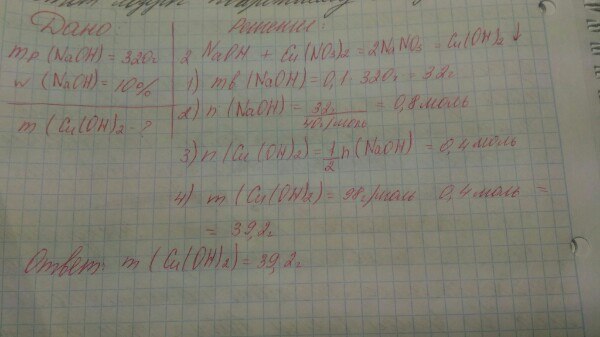 Дано:
mр (NaOH) = 320г
w (NaOH) = 10%
m (Cu(OH)2 - ?
Решение:
2 NaPH + Cu(NO3)2 = 2NaNO3 = Cu(OH)2 ↓
1) mв (NaOH) = 0,1 · 320г = 32г
2) n (NaOH) = 32г / 40г/моль = 0,8 моль
3) n (Cu(OH)2) = 1/2 n (NaOH) = 0,4 моль
4) m (Cu(OH)2) = 98г/моль · 0,4 моль =
= 39,2г
Ответ: m (Cu(OH)2) = 39,2г